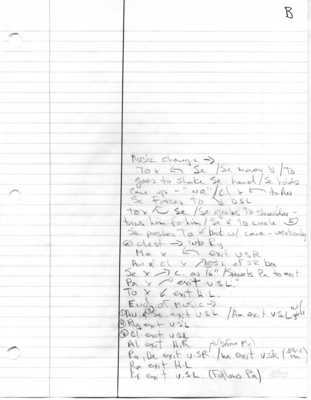 B
Music change →
To x ↖ Se / Se money / To
goes to shake Se hand / Se holds
cane up - "NO" / Cl x ← to An
Se forces To ↓ DSL
To x ↖ Se / Se grabs To shoulder -
turns him to him / Se & To circle
Se pushes To ↙ back w/ cane - vertically
@ chest →
Ma x ↖ exit USR
An & Cl x ↗ DSL of SR box
Se x → C on 16" / Signals Pa to exit
Pa x ↗ exit U.S.L.
To x ↙ exit H.L.
End of Music →
① An & Se exit U.S.L / Am exit U.S.L w/
② Pu exit U.S.L
③ Cl exit U.S.L
Al exit H.R
Ro, De exit U.S.R / Ma exit U.S.R
Ra exit H.L
Kr exit U.S.L. (Follows Pa)